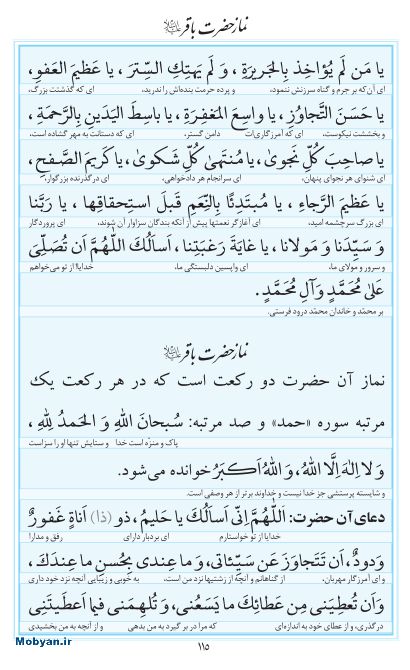 نماز حضرت باقر
یا مَن لَم یُؤاخِذ بِالجَریرَةِ ، وَ لَم یَهتِكِ السِّترَ ، یا عَظیمَ العَفوِ،
ای آن‌که بر جرم و گناه سرزنش ننمود، و پرده حرمت بنده‌اش را ندرید، ای که گذشتت بزرگ،
یا حَسَنَ التَّجاوُزِ ، یا واسِعَ المَغفِرَةِ ، یا باسِطَ الیَدَینِ بِالرَّحمَةِ ،
و بخششت نیکوست، ای که آمرزگاری‌ات دامن گستر، ای که دستانت به مهر گشاده است،
یا صاحِبَ کُلِّ نَجویٰ، یا مُنتَهیٰ کُلِّ شَکویٰ، یا کَریمَ الصَّفحِ،
ای شنوای هر نجوای پنهان، ای سرانجام هر دادخواهی، ای درگذرنده بزرگوار،
یا عَظیمَ الرَّجاءِ ، یا مُبتَدِئًا بِالنِّعَمِ قَبلَ استِحقاقِها ، یا رَبَّنا
ای بزرگ سرچشمه امید، ای آغازگر نعمتها پیش از آنکه بندگان سزاوار آن شوند، ای پروردگار
وَ سَیِّدَنا وَ مَولانا ، یا غایَةَ رَغبَتِنا ، اَسأَلُكَ اللّٰهُمَّ اَن تُصَلِّیَ
و سرور و مولای ما، ای واپسین دلبستگی ما، خدایا! از تو می‌خواهم
عَلیٰ مُحَمَّدٍ وَآلِ مُحَمَّدٍ.
بر محمّد و خاندان محمّد درود فرستی.
نماز حضرت باقر
نماز آن حضرت دو رکعت است که در هر رکعت یک
مرتبه سوره «حمد» و صد مرتبه: سُبحانَ اللهِ وَ الحَمدُ لِلّٰهِ ،
پاک و منزّه است خدا و ستایش تنها او را سزاست
وَ لا اِلٰهَ اِلَّا اللهُ، وَ اللهُ اَکبَرُ خوانده می‌شود.
و شایسته پرستشی جز خدا نیست و خداوند برتر از هر وصفی است.
دعای آن حضرت: اَللّٰهُمَّ اِنّی اَسأَلُكَ یا حَلیمُ، ذو (ذا) اَناةٍ غَفورٌ
خدایا از تو خواستارم ای بردبار دارای رفق و مدارا
وَدودٌ، اَن تَتَجاوَزَ عَن سَیِّئاتی، وَ ما عِندی بِحُسنِ ما عِندَكَ،
و ای آمرزگار مهربان، از گناهانم و آنچه از زشتیها نزد من است، به خوبی و زیبایی آنچه نزد خود داری
وَ اَن تُعطِیَنی مِن عَطائِكَ ما یَسَعُنی، وَ تُلهِمَنی فیما اَعطَیتَنی
درگذری، و از عطای خود به اندازه‌ای که مرا در بر گیرد به من بدهی و از آنچه به من بخشیدی
۱۱۵
Mobyan.ir